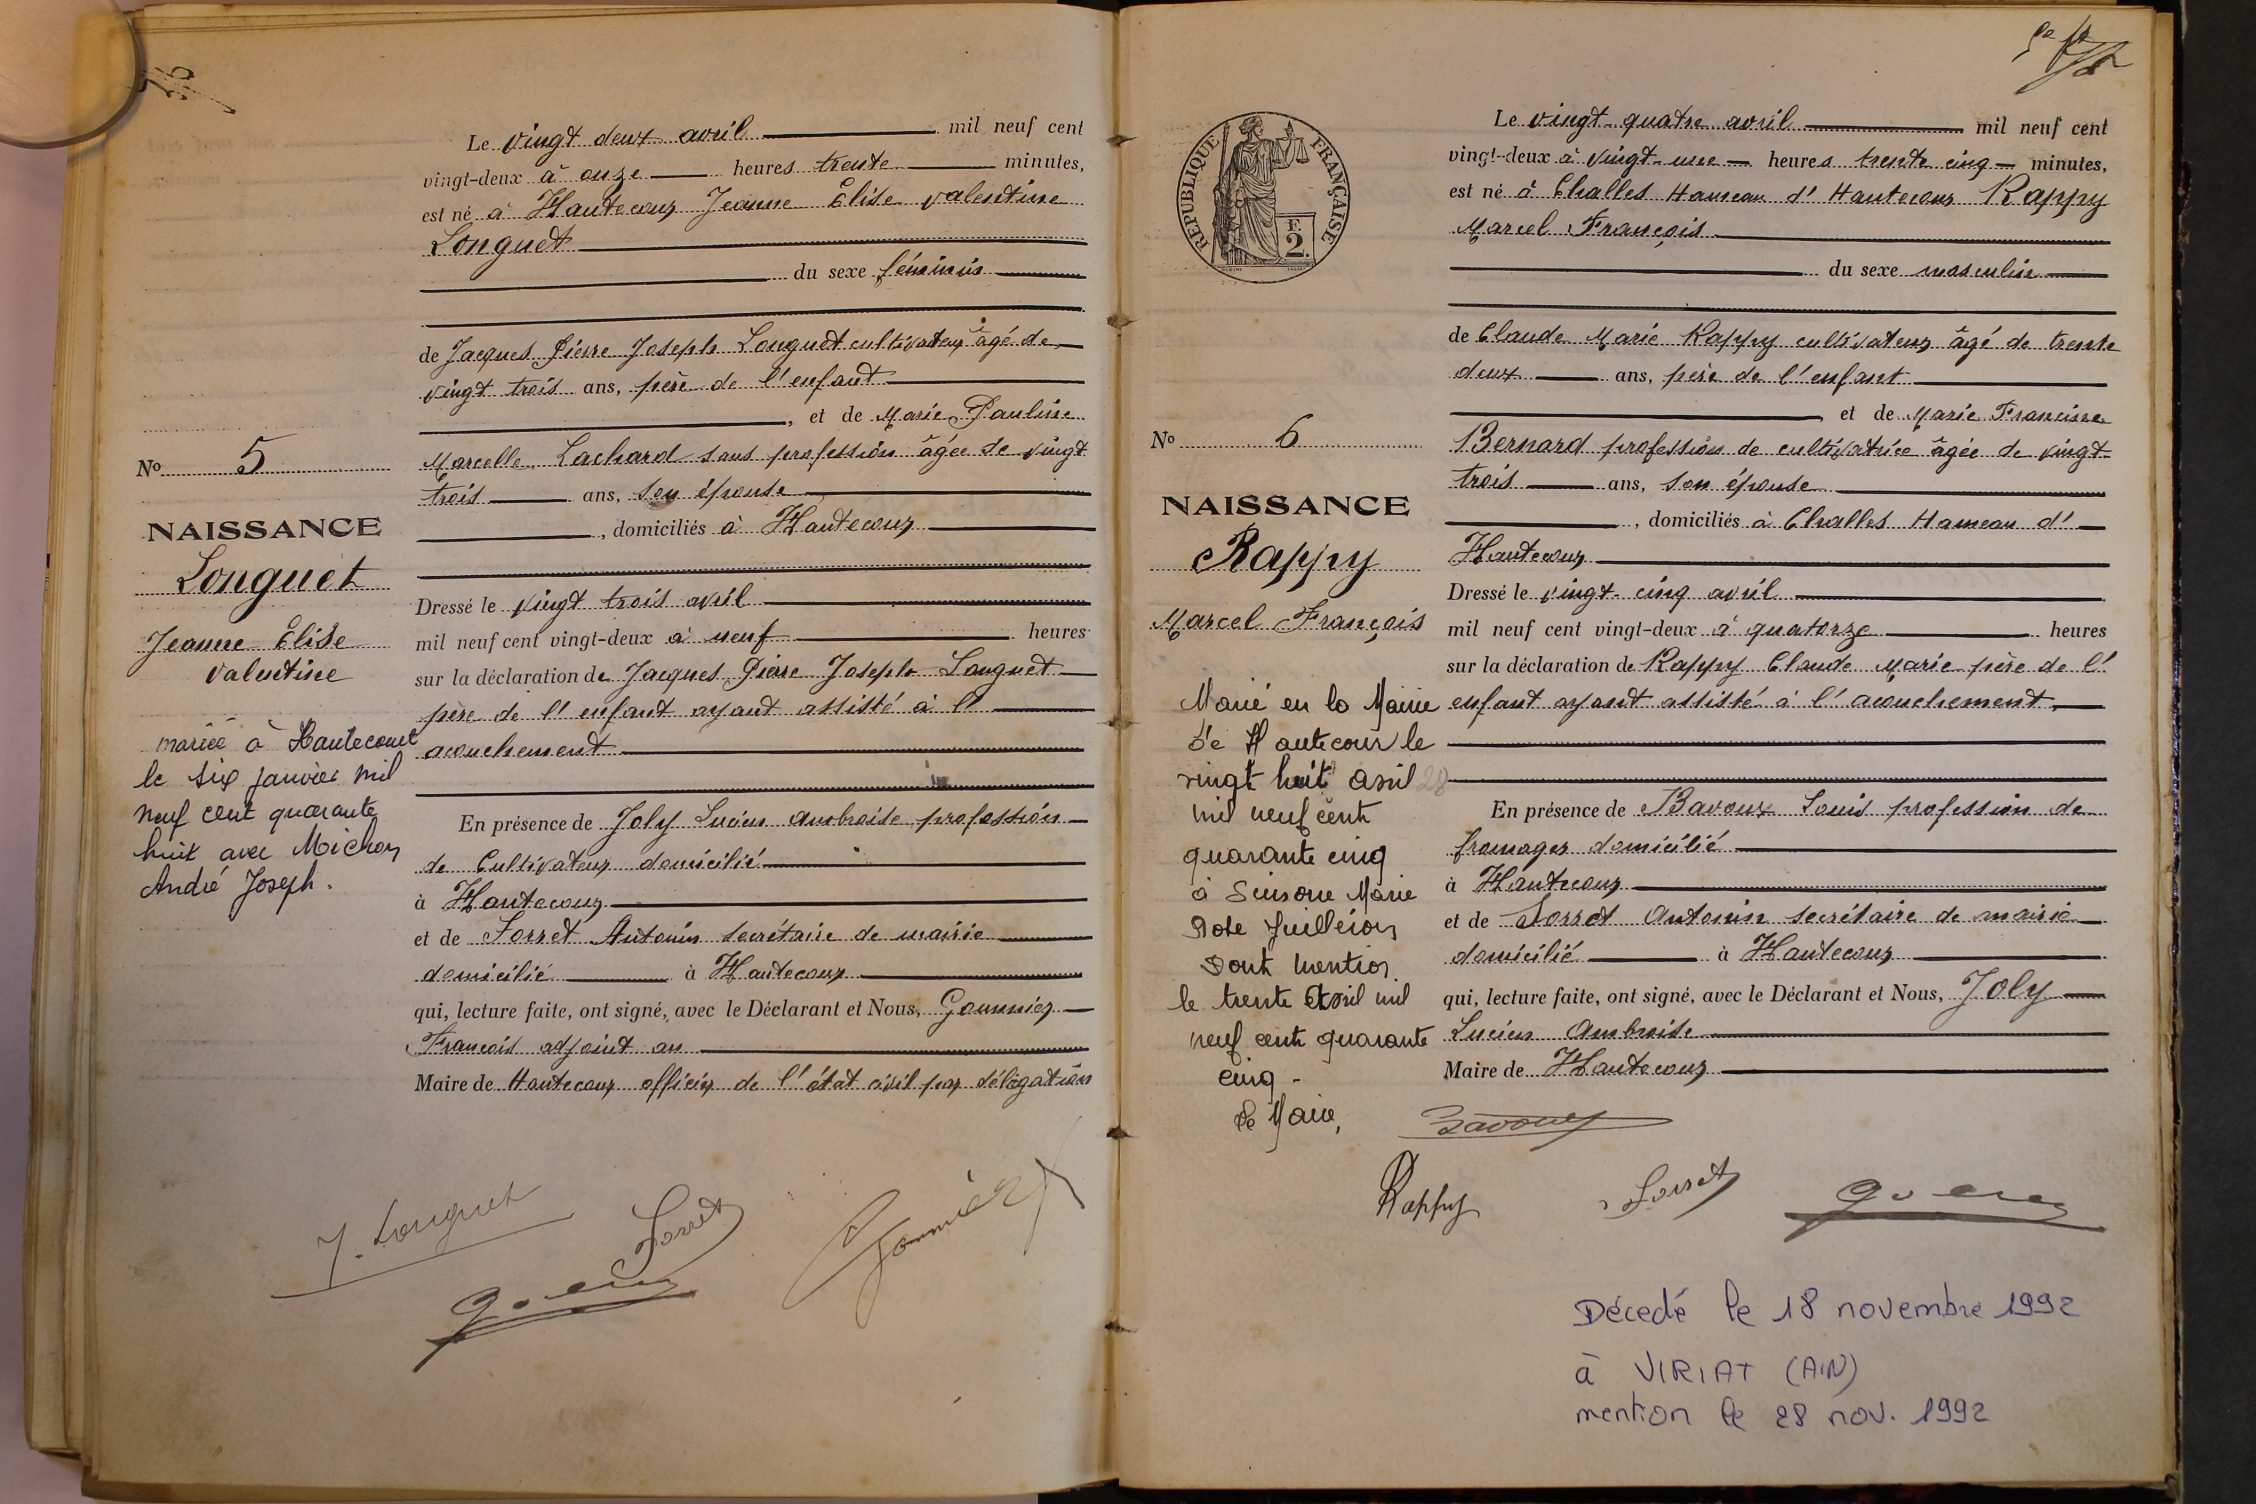 Le vingt deux avril mil neuf cent
vingt-deux à onze heures trente minutes,
est né à Hautecour Jeanne Élise Valentine
Longuet
du sexe féminin
de Jacques Pierre Joseph Longuet cultivateur âgé de
vingt trois ans, père de l'enfant
, et de Marie Pauline
Marcelle Lachard sans profession âgée de vingt
trois ans, son épouse
, domiciliés à Hautecour
Dressé le vingt trois avril
mil neuf cent vingt-deux à neuf heures
sur la déclaration de Jacques Pierre Joseph Longuet
père de l'enfant ayant assisté à l'
acouchement
En présence de Joly Lucien Ambroise profession
de Cultivateur domicilié
à Hautecour
et de Sorret Antonin secrétaire de mairie
domicilié à Hautecour
qui, lecture faite, ont signé, avec le Déclarant et Nous, Gommier
François adjoint au
Maire de Hautecour officier de l'état civil par délégation
No 5
NAISSANCE
Longuet
Jeanne Élise
Valentine
mariée à Hautecour
le six janvier mil
neuf cent quarante
huit avec Michon
André Joseph.
J. Longuet
Sorret
Gommier
RÉPUBLIQUE FRANÇAISE
F.
2.
Le vingt-quatre avril mil neuf cent
vingt-deux à vingt-une heures trente cinq minutes,
est né à Challes Hameau d'Hautecour Rappy
Marcel François
du sexe masculin
de Claude Marie Rappy cultivateur âgé de trente
deux ans, père de l'enfant
et de Marie Francine
Bernard profession de cultivatrice âgée de vingt-
trois ans, son épouse
, domiciliés à Challes Hameau d'
Hautecour
Dressé le vingt-cinq avril
mil neuf cent vingt-deux à quatorze heures
sur la déclaration de Rappy Claude Marie père de l'
enfant ayant assisté à l'acouchement
En présence de Bavoux Louis profession de
fromager domicilié
à Hautecour
et de Sorret Antonin secrétaire de mairie
domicilié à Hautecour
qui, lecture faite, ont signé, avec le Déclarant et Nous, Joly
Lucien Ambroise
Maire de Hautecour
No 6
NAISSANCE
Rappy
Marcel François
Marié en la Mairie
de Hautecour le
vingt huit avril 28
mil neuf cent
quarante cinq
à Simone Marie
Rose Juilleron
Dont mention
le trente Avril mil
neuf cent quarante
cinq -
Le Maire,
Bavoux
Rappy
Sorret
Décedé le 18 novembre 1992
à VIRIAT (AIN)
mention le 28 nov. 1992